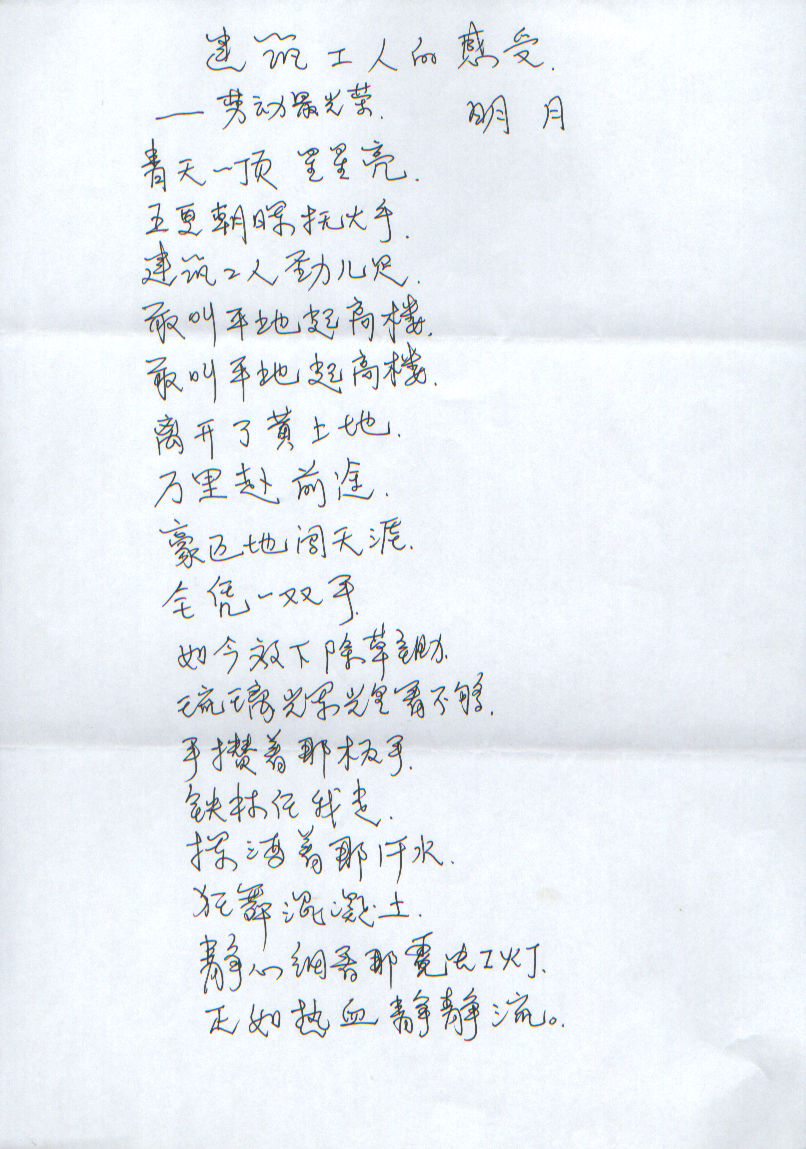 建筑工人的感受.
——劳动最光荣. 明月
青天一顶 星星亮.
五更朝 抚火手.
建筑工人劲儿足.
敢叫平地起高楼.
敢叫平地起高楼.
离开了黄土地.
万里赴前途.
豪迈地闯天涯.
全凭一双手.
如今放下除草锄.
琉璃光 光里看不够.
手攥着那板手.
铁林任我走.
挥洒着那汗水.
狂舞混凝土.
静心细看那霓虹灯.
正如热血静静流。